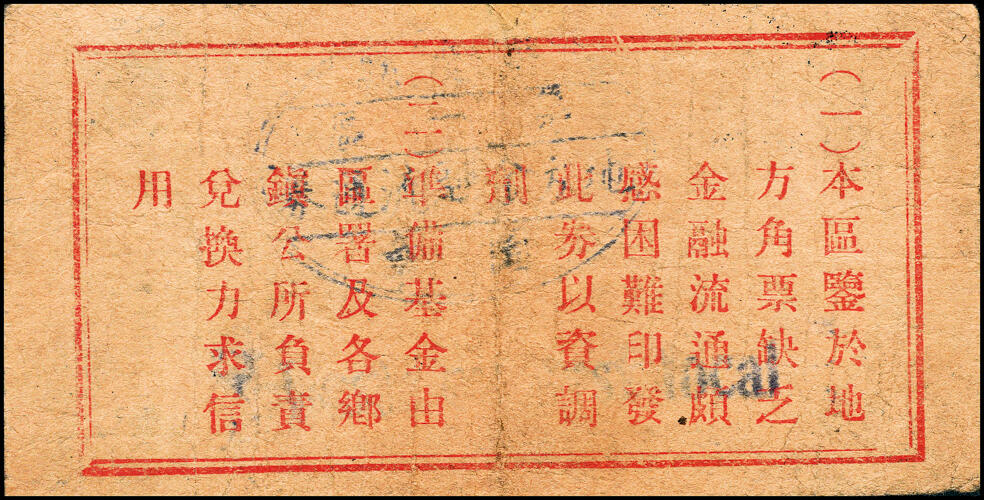 （一）本區鑒於地
方角票缺乏
金融流通頗
感困難印發
此券以資調
劑
（二）準備基金由
區署及各鄉
鎭公所負責
兌換力求信
用